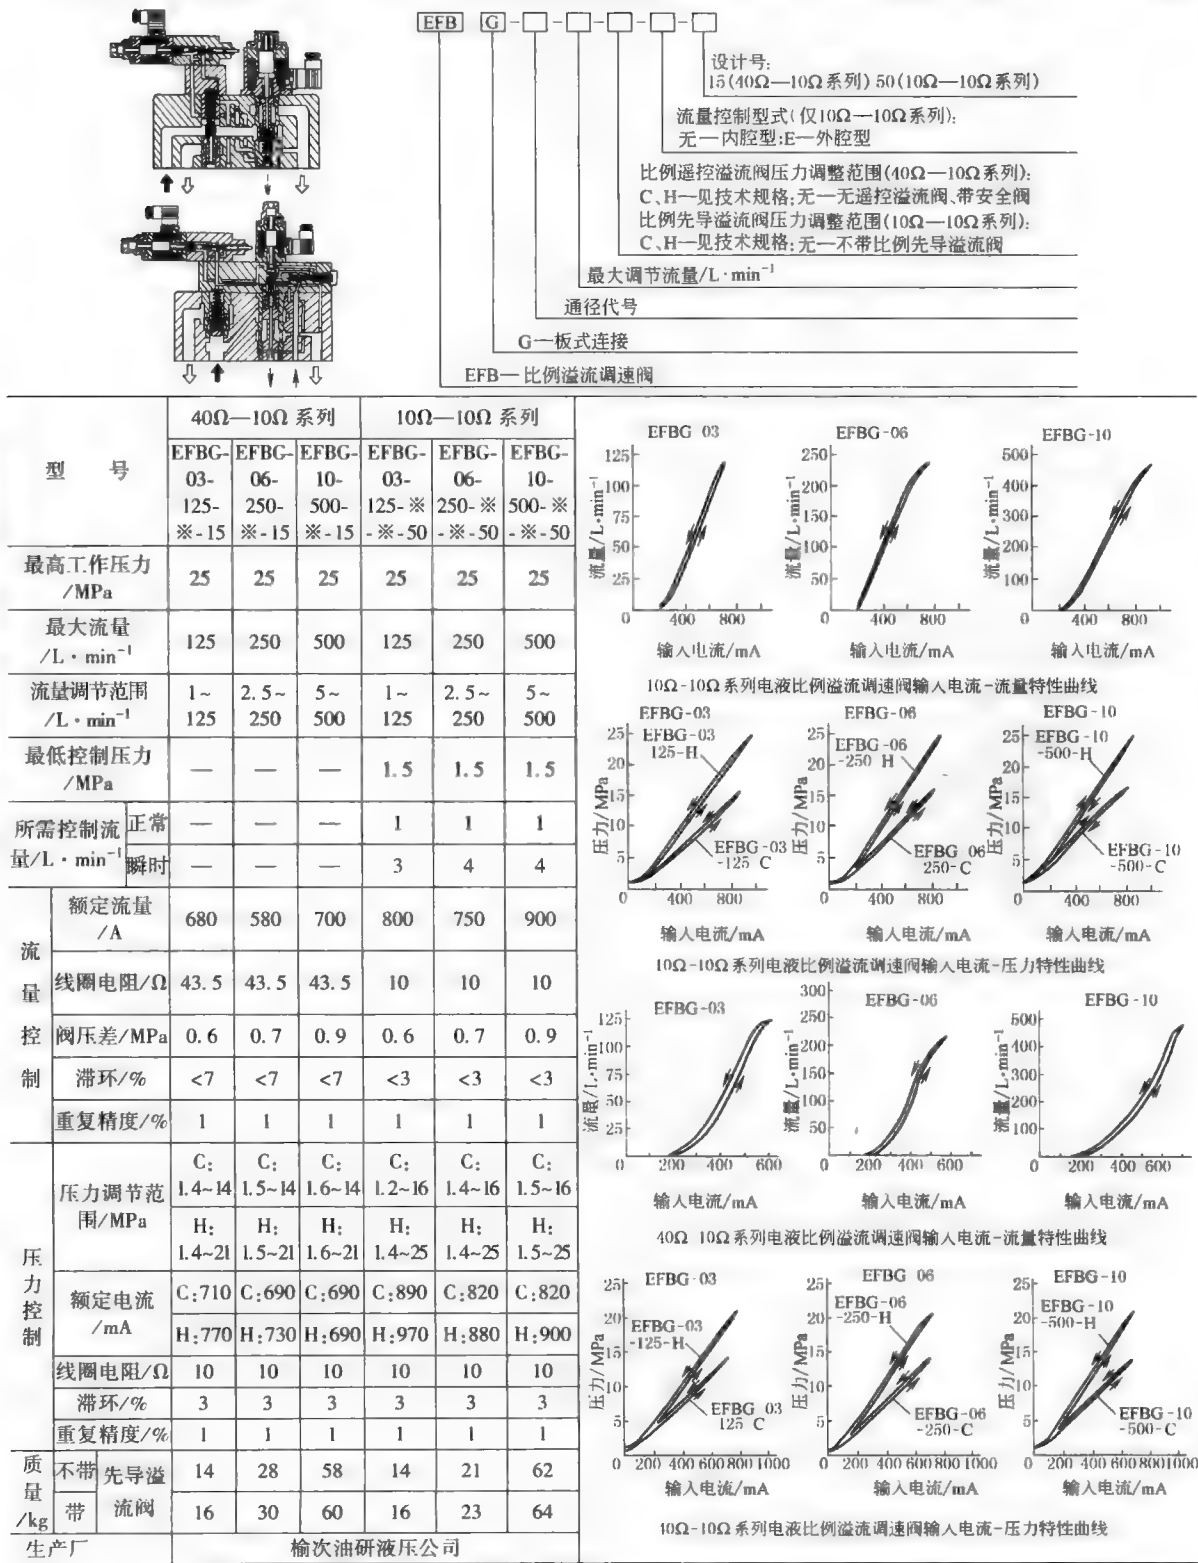 EFB G - □ - □ - □ - □ - □
设计号:
15(40Ω—10Ω系列) 50(10Ω—10Ω系列)
流量控制型式(仅10Ω—10Ω系列):
无—内腔型;E—外腔型
比例遥控溢流阀压力调整范围(40Ω—10Ω系列):
C、H—见技术规格;无—无遥控溢流阀、带安全阀
比例先导溢流阀压力调整范围(10Ω—10Ω系列):
C、H—见技术规格;无—不带比例先导溢流阀
最大调节流量/L·min⁻¹
通径代号
G—板式连接
EFB—比例溢流调速阀
型 号 40Ω—10Ω 系列 10Ω—10Ω 系列
EFBG- EFBG- EFBG- EFBG- EFBG- EFBG-
03- 06- 10- 03- 06- 10-
125- 250- 500- 125-※ 250-※ 500-※
※-15 ※-15 ※-15 -※-50 -※-50 -※-50
最高工作压力
/MPa 25 25 25 25 25 25
最大流量
/L·min⁻¹ 125 250 500 125 250 500
流量调节范围 1~ 2.5~ 5~ 1~ 2.5~ 5~
/L·min⁻¹ 125 250 500 125 250 500
最低控制压力
/MPa — — — 1.5 1.5 1.5
所需控制流量/L·min⁻¹ 正常 — — — 1 1 1
瞬时 — — — 3 4 4
流量控制
额定流量
/A 680 580 700 800 750 900
线圈电阻/Ω 43.5 43.5 43.5 10 10 10
阀压差/MPa 0.6 0.7 0.9 0.6 0.7 0.9
滞环/% <7 <7 <7 <3 <3 <3
重复精度/% 1 1 1 1 1 1
压力控制
压力调节范围/MPa
C: C: C: C: C: C:
1.4~14 1.5~14 1.6~14 1.2~16 1.4~16 1.5~16
H: H: H: H: H: H:
1.4~21 1.5~21 1.6~21 1.4~25 1.4~25 1.5~25
额定电流
/mA
C:710 C:690 C:690 C:890 C:820 C:820
H:770 H:730 H:690 H:970 H:880 H:900
线圈电阻/Ω 10 10 10 10 10 10
滞环/% 3 3 3 3 3 3
重复精度/% 1 1 1 1 1 1
质量/kg 先导溢流阀
不带 14 28 58 14 21 62
带 16 30 60 16 23 64
生产厂 榆次油研液压公司
EFBG 03
流量/L·min⁻¹
125 100 75 50 25 0
0 400 800
输入电流/mA
EFBG-06
流量/L·min⁻¹
250 200 150 100 50 0
0 400 800
输入电流/mA
EFBG-10
流量/L·min⁻¹
500 400 300 200 100 0
0 400 800
输入电流/mA
10Ω-10Ω系列电液比例溢流调速阀输入电流-流量特性曲线
EFBG-03
EFBG-03
125-H
EFBG-03
-125 C
压力/MPa
25 20 15 10 5
0 400 800
输入电流/mA
EFBG-06
EFBG-06
-250 H
EFBG 06
250-C
压力/MPa
25 20 15 10 5
0 400 800
输入电流/mA
EFBG-10
EFBG-10
-500-H
EFBG-10
-500-C
压力/MPa
25 20 15 10 5
0 400 800
输入电流/mA
10Ω-10Ω系列电液比例溢流调速阀输入电流-压力特性曲线
EFBG-03
流量/L·min⁻¹
125 100 75 50 25
0 200 400 600
输入电流/mA
EFBG-06
流量/L·min⁻¹
300 250 200 150 100 50
0 200 400 600
输入电流/mA
EFBG-10
流量/L·min⁻¹
500 400 300 200 100
0 200 400 600
输入电流/mA
40Ω 10Ω系列电液比例溢流调速阀输入电流-流量特性曲线
EFBG-03
EFBG-03
-125-H
EFBG 03
125 C
压力/MPa
25 20 15 10 5
0 200 400 600 800 1000
输入电流/mA
EFBG 06
EFBG-06
-250-H
EFBG-06
-250-C
压力/MPa
25 20 15 10 5
0 200 400 600 800 1000
输入电流/mA
EFBG-10
EFBG-10
-500-H
EFBG-10
-500-C
压力/MPa
25 20 15 10 5
0 200 400 600 800 1000
输入电流/mA
40Ω-10Ω系列电液比例溢流调速阀输入电流-压力特性曲线